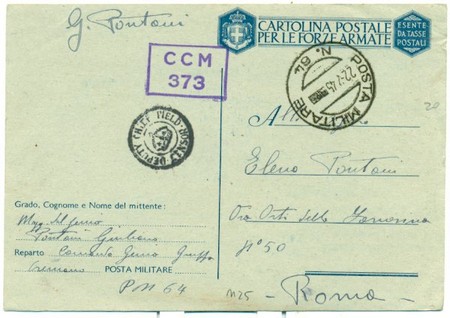 G. Pontoni
CARTOLINA POSTALE
PER LE FORZE ARMATE
ESENTE
DA TASSE
POSTALI
CCM
373
POSTA MILITARE
N. 64
22.7.45
20
DEPUTY CHIEF FIELD
All
Elena Pontoni
Via Orti della Farnesina
N° 50
Roma
Grado, Cognome e Nome del mittente:
Mag. del genio
Pontoni Giuliano
Reparto Comando Genio Gruppo
Cremona POSTA MILITARE
PM 64
M25